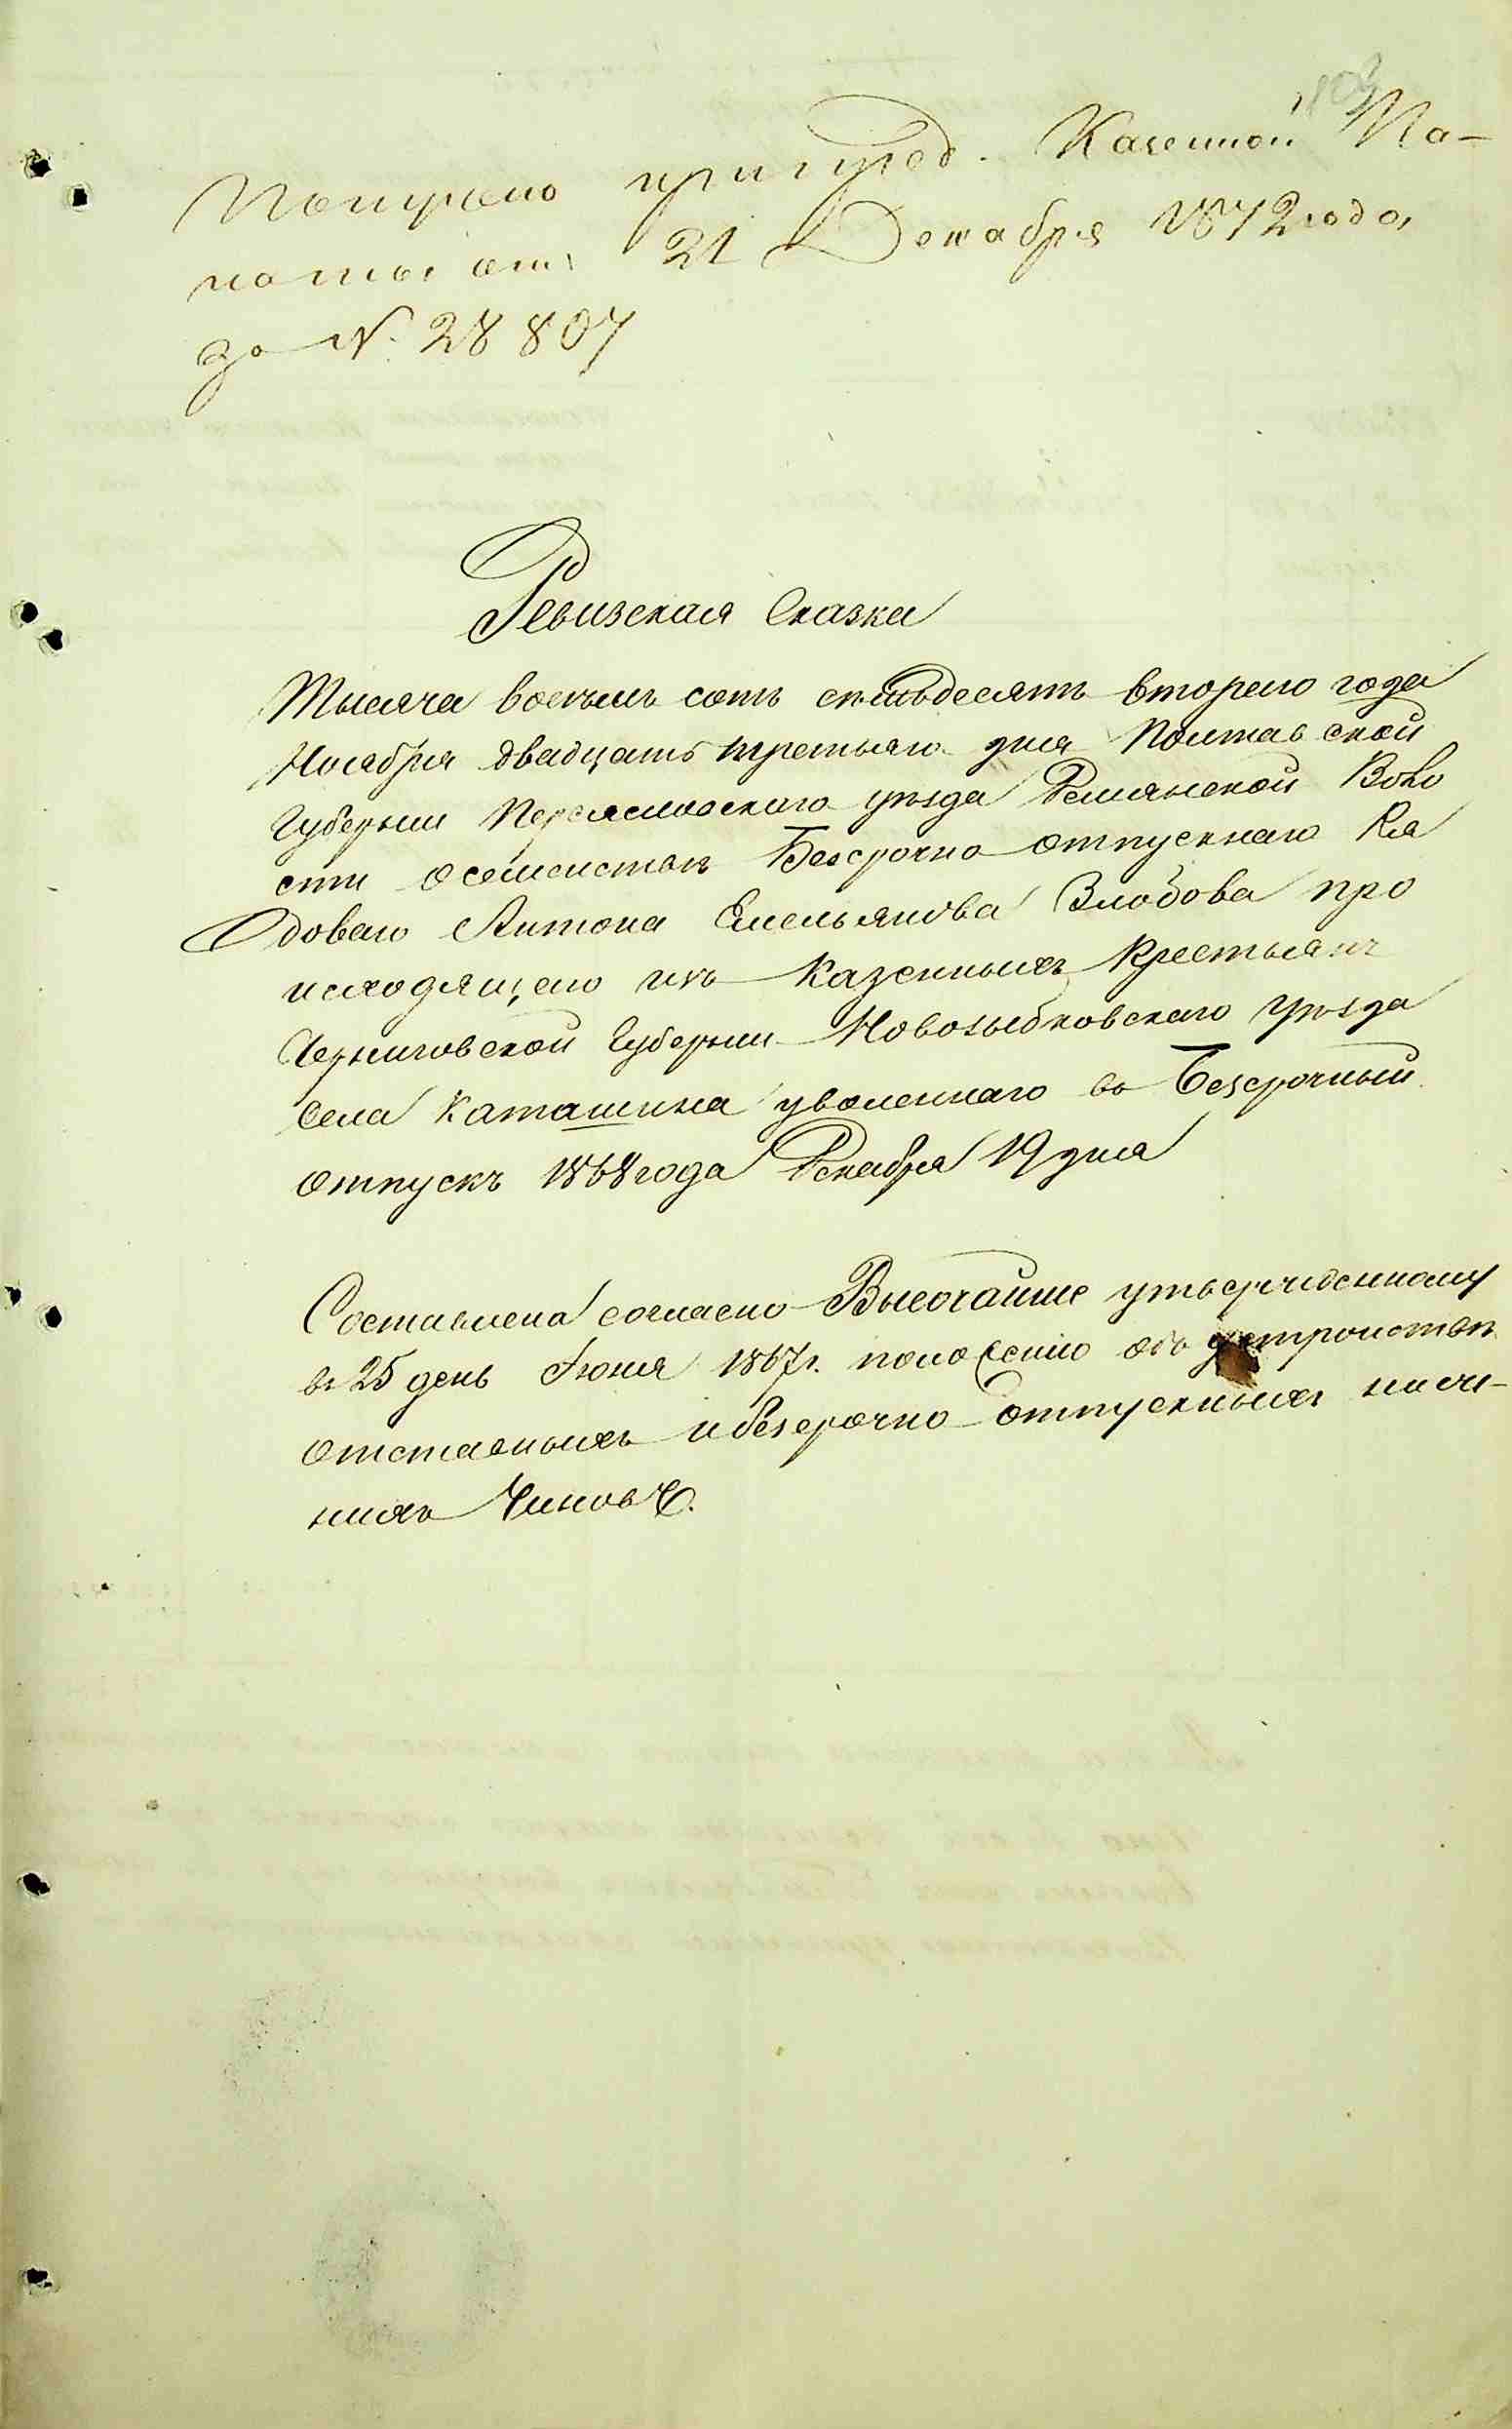 Получено при указѣ. Казенной Па-
латы отъ 21 Декабря 1872 года,
за N. 28807
Ревизская Сказка
Тысяча восемь сотъ семьдесятъ втораго года
Ноября двадцать третьяго дня Полтавской
Губерніи Переяславскаго уѣзда Воло
сти о семействѣ Безсрочно отпускнаго Ря
доваго Антона Емельянова Злобова про
исходящаго изъ Казенныхъ Крестьянъ
Черниговской Губерніи Новозыбковскаго уѣзда
села Каташина уволеннаго въ Безсрочный
отпускъ 1868 года Декабря 19 дня
Составлена согласно Высочайше утвержденному
въ 25 день Іюня 1867 г. положенію объ устройствѣ
отставныхъ и безсрочно отпускныхъ нижн-
нихъ Чиновъ.